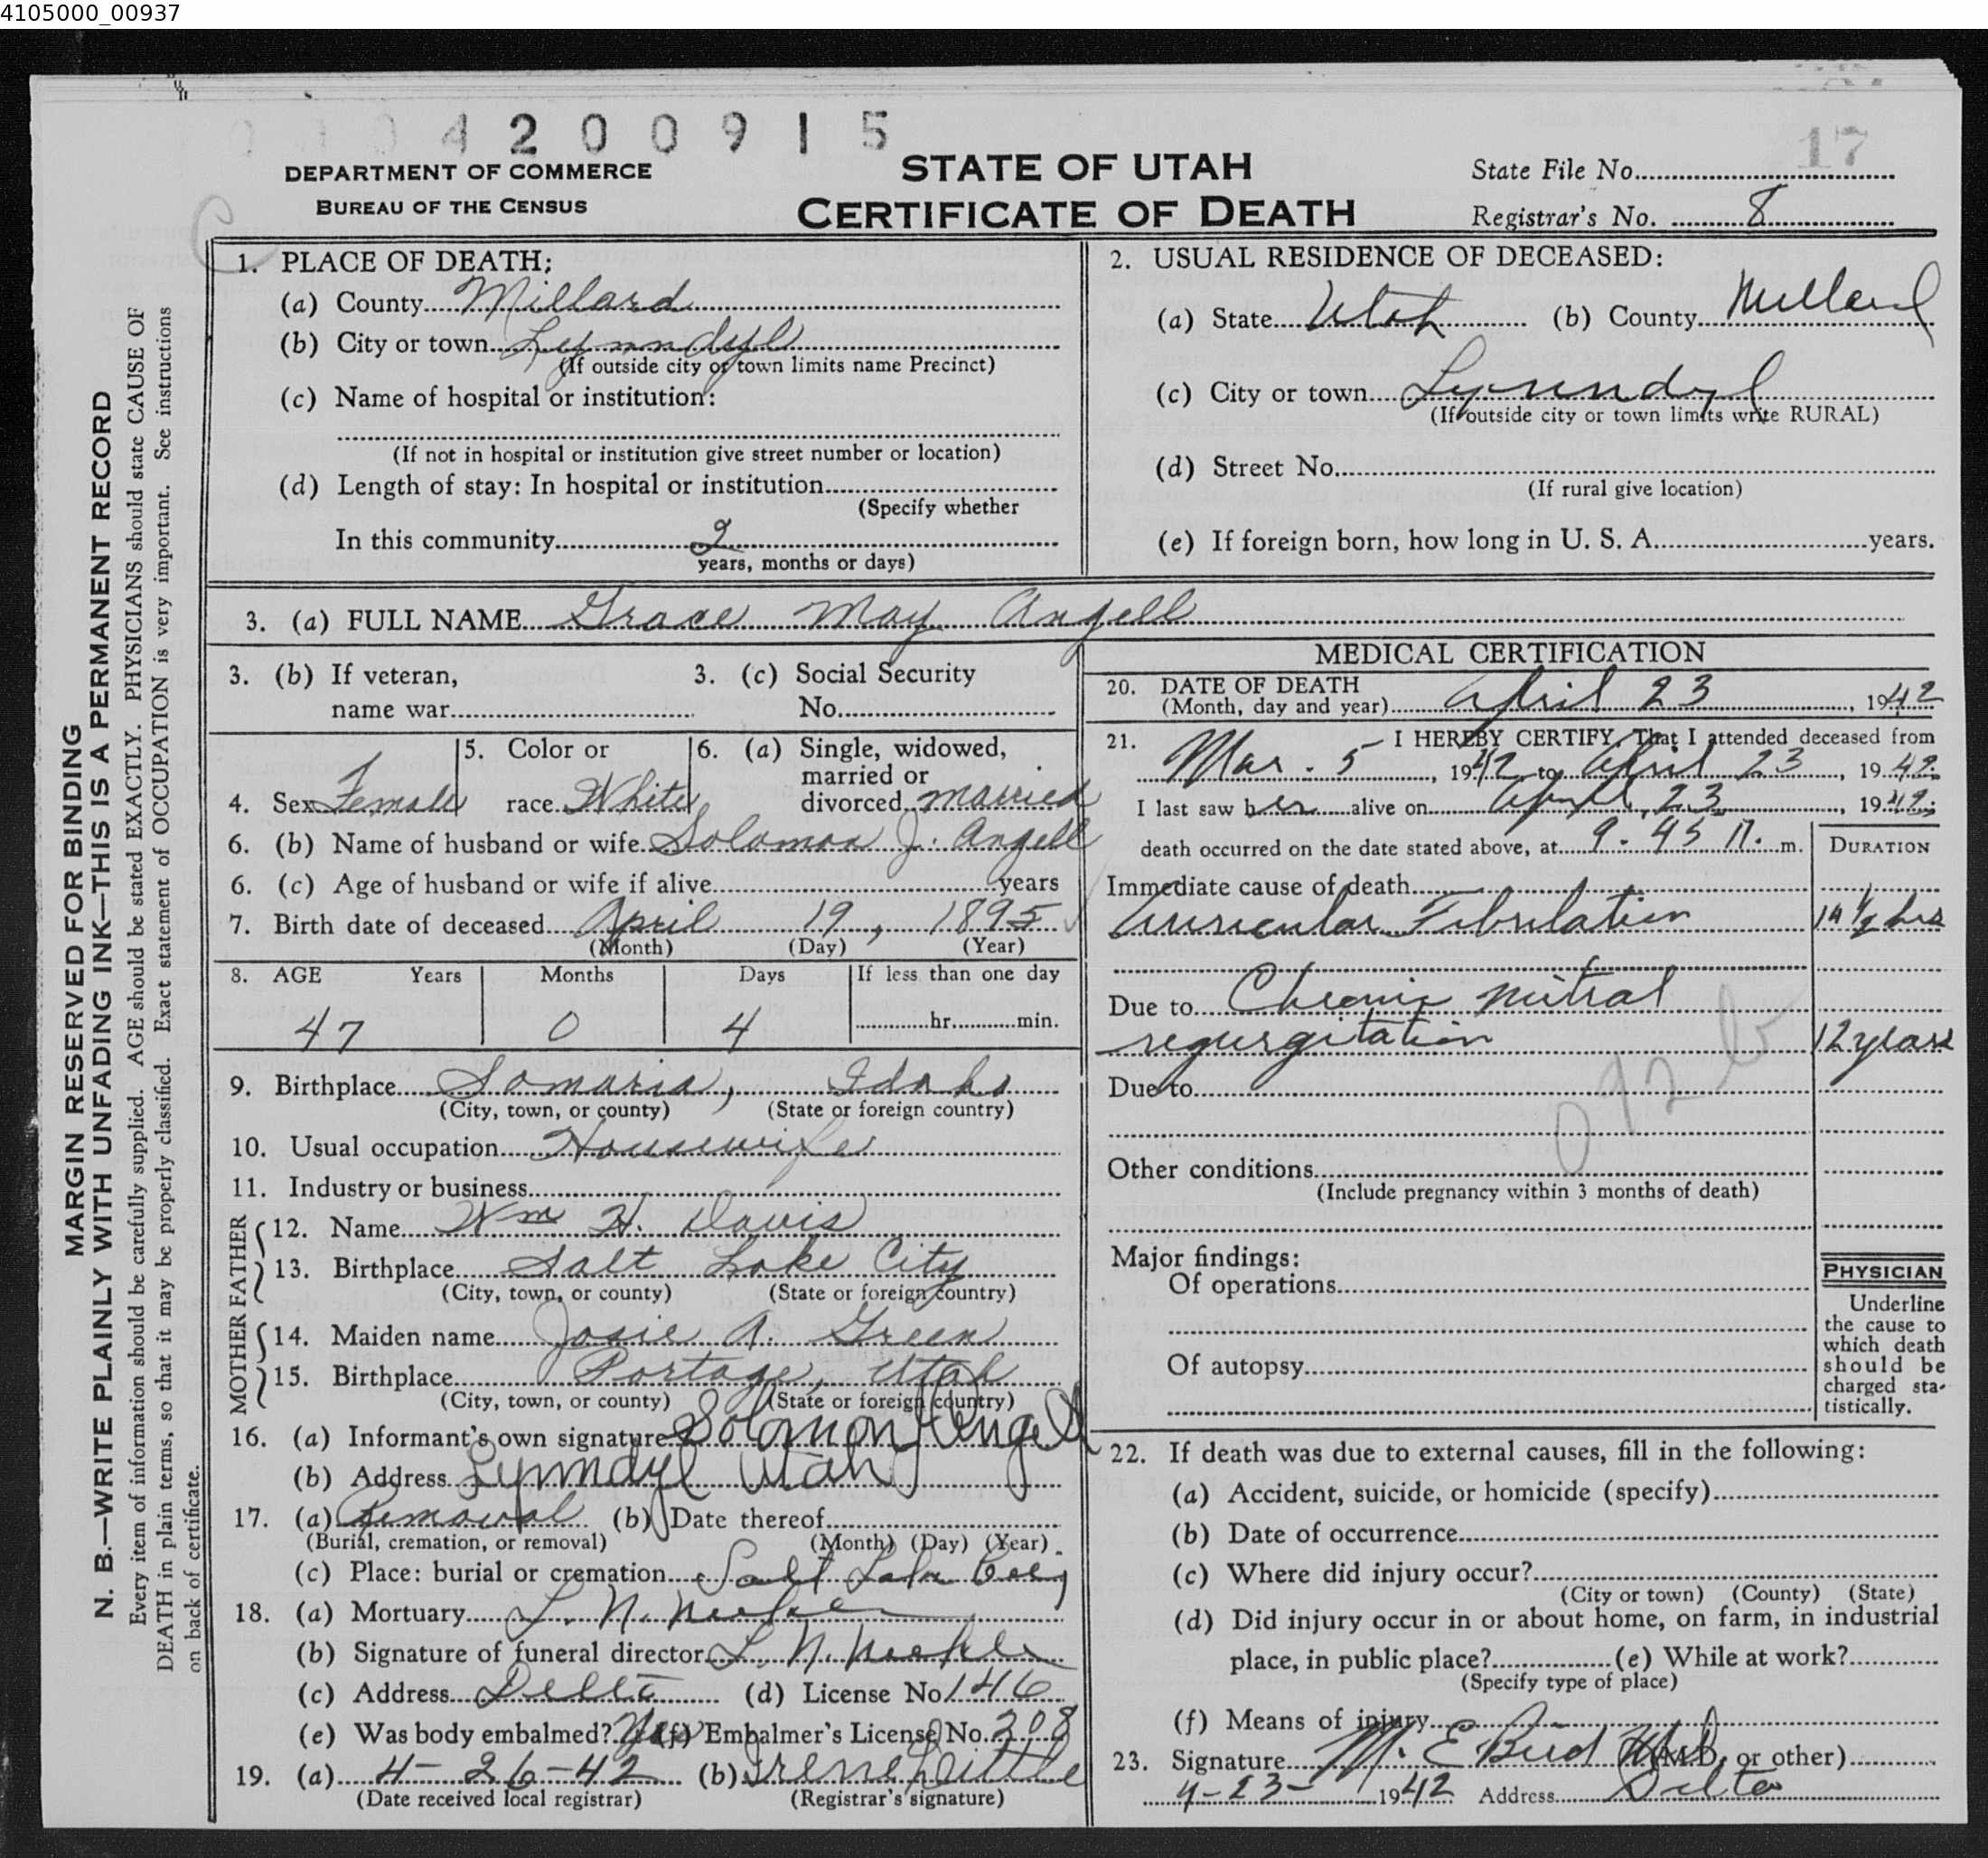 4105000_00937
0 1 0 4 2 0 0 9 1 5
17
DEPARTMENT OF COMMERCE
BUREAU OF THE CENSUS
STATE OF UTAH
CERTIFICATE OF DEATH
State File No.
Registrar's No. 8
MARGIN RESERVED FOR BINDING
N. B.—WRITE PLAINLY WITH UNFADING INK—THIS IS A PERMANENT RECORD
Every item of information should be carefully supplied. AGE should be stated EXACTLY. PHYSICIANS should state CAUSE OF
DEATH in plain terms, so that it may be properly classified. Exact statement of OCCUPATION is very important. See instructions
on back of certificate.
1. PLACE OF DEATH:
(a) County Millard
(b) City or town Lynndyl
(If outside city or town limits name Precinct)
(c) Name of hospital or institution:
(If not in hospital or institution give street number or location)
(d) Length of stay: In hospital or institution
(Specify whether
In this community 2
years, months or days)
2. USUAL RESIDENCE OF DECEASED:
(a) State Utah (b) County Millard
(c) City or town Lynndyl
(If outside city or town limits write RURAL)
(d) Street No.
(If rural give location)
(e) If foreign born, how long in U. S. A. years.
3. (a) FULL NAME Grace May Angell
3. (b) If veteran,
name war
3. (c) Social Security
No.
4. Sex Female
5. Color or
race White
6. (a) Single, widowed,
married or
divorced married
6. (b) Name of husband or wife Solomon J. Angell
6. (c) Age of husband or wife if alive years
7. Birth date of deceased April 19, 1895
(Month) (Day) (Year)
8. AGE Years Months Days If less than one day
47 0 4 hr. min.
9. Birthplace Samaria, Idaho
(City, town, or county) (State or foreign country)
10. Usual occupation Housewife
11. Industry or business
FATHER
12. Name Wm H. Davis
13. Birthplace Salt Lake City
(City, town, or county) (State or foreign country)
MOTHER
14. Maiden name Josie A. Green
15. Birthplace Portage, Utah
(City, town, or county) (State or foreign country)
16. (a) Informant's own signature Solomon J Angell
(b) Address Lynndyl Utah
17. (a) Removal (b) Date thereof
(Burial, cremation, or removal) (Month) (Day) (Year)
(c) Place: burial or cremation Salt Lake City
18. (a) Mortuary L. N.
(b) Signature of funeral director L. N.
(c) Address Delta (d) License No 146
(e) Was body embalmed? Yes (f) Embalmer's License No. 208
19. (a) 4-26-42 (b) Irene Little
(Date received local registrar) (Registrar's signature)
MEDICAL CERTIFICATION
20. DATE OF DEATH
(Month, day and year) April 23, 1942
21. I HEREBY CERTIFY, That I attended deceased from
Mar. 5, 1942 to April 23, 1942
I last saw her alive on April, 23, 1942;
death occurred on the date stated above, at 9.45 m.
DURATION
Immediate cause of death
Auricular Fibrulation 14 1/2 hrs
Due to Chronic mitral
regurgitation 12 years
Due to
092 b
Other conditions
(Include pregnancy within 3 months of death)
Major findings:
Of operations
Of autopsy
PHYSICIAN
Underline
the cause to
which death
should be
charged sta-
tistically.
22. If death was due to external causes, fill in the following:
(a) Accident, suicide, or homicide (specify)
(b) Date of occurrence
(c) Where did injury occur?
(City or town) (County) (State)
(d) Did injury occur in or about home, on farm, in industrial
place, in public place? (e) While at work?
(Specify type of place)
(f) Means of injury
23. Signature M. E Bird M.D. (M.D. or other)
4-23- 1942 Address Delta